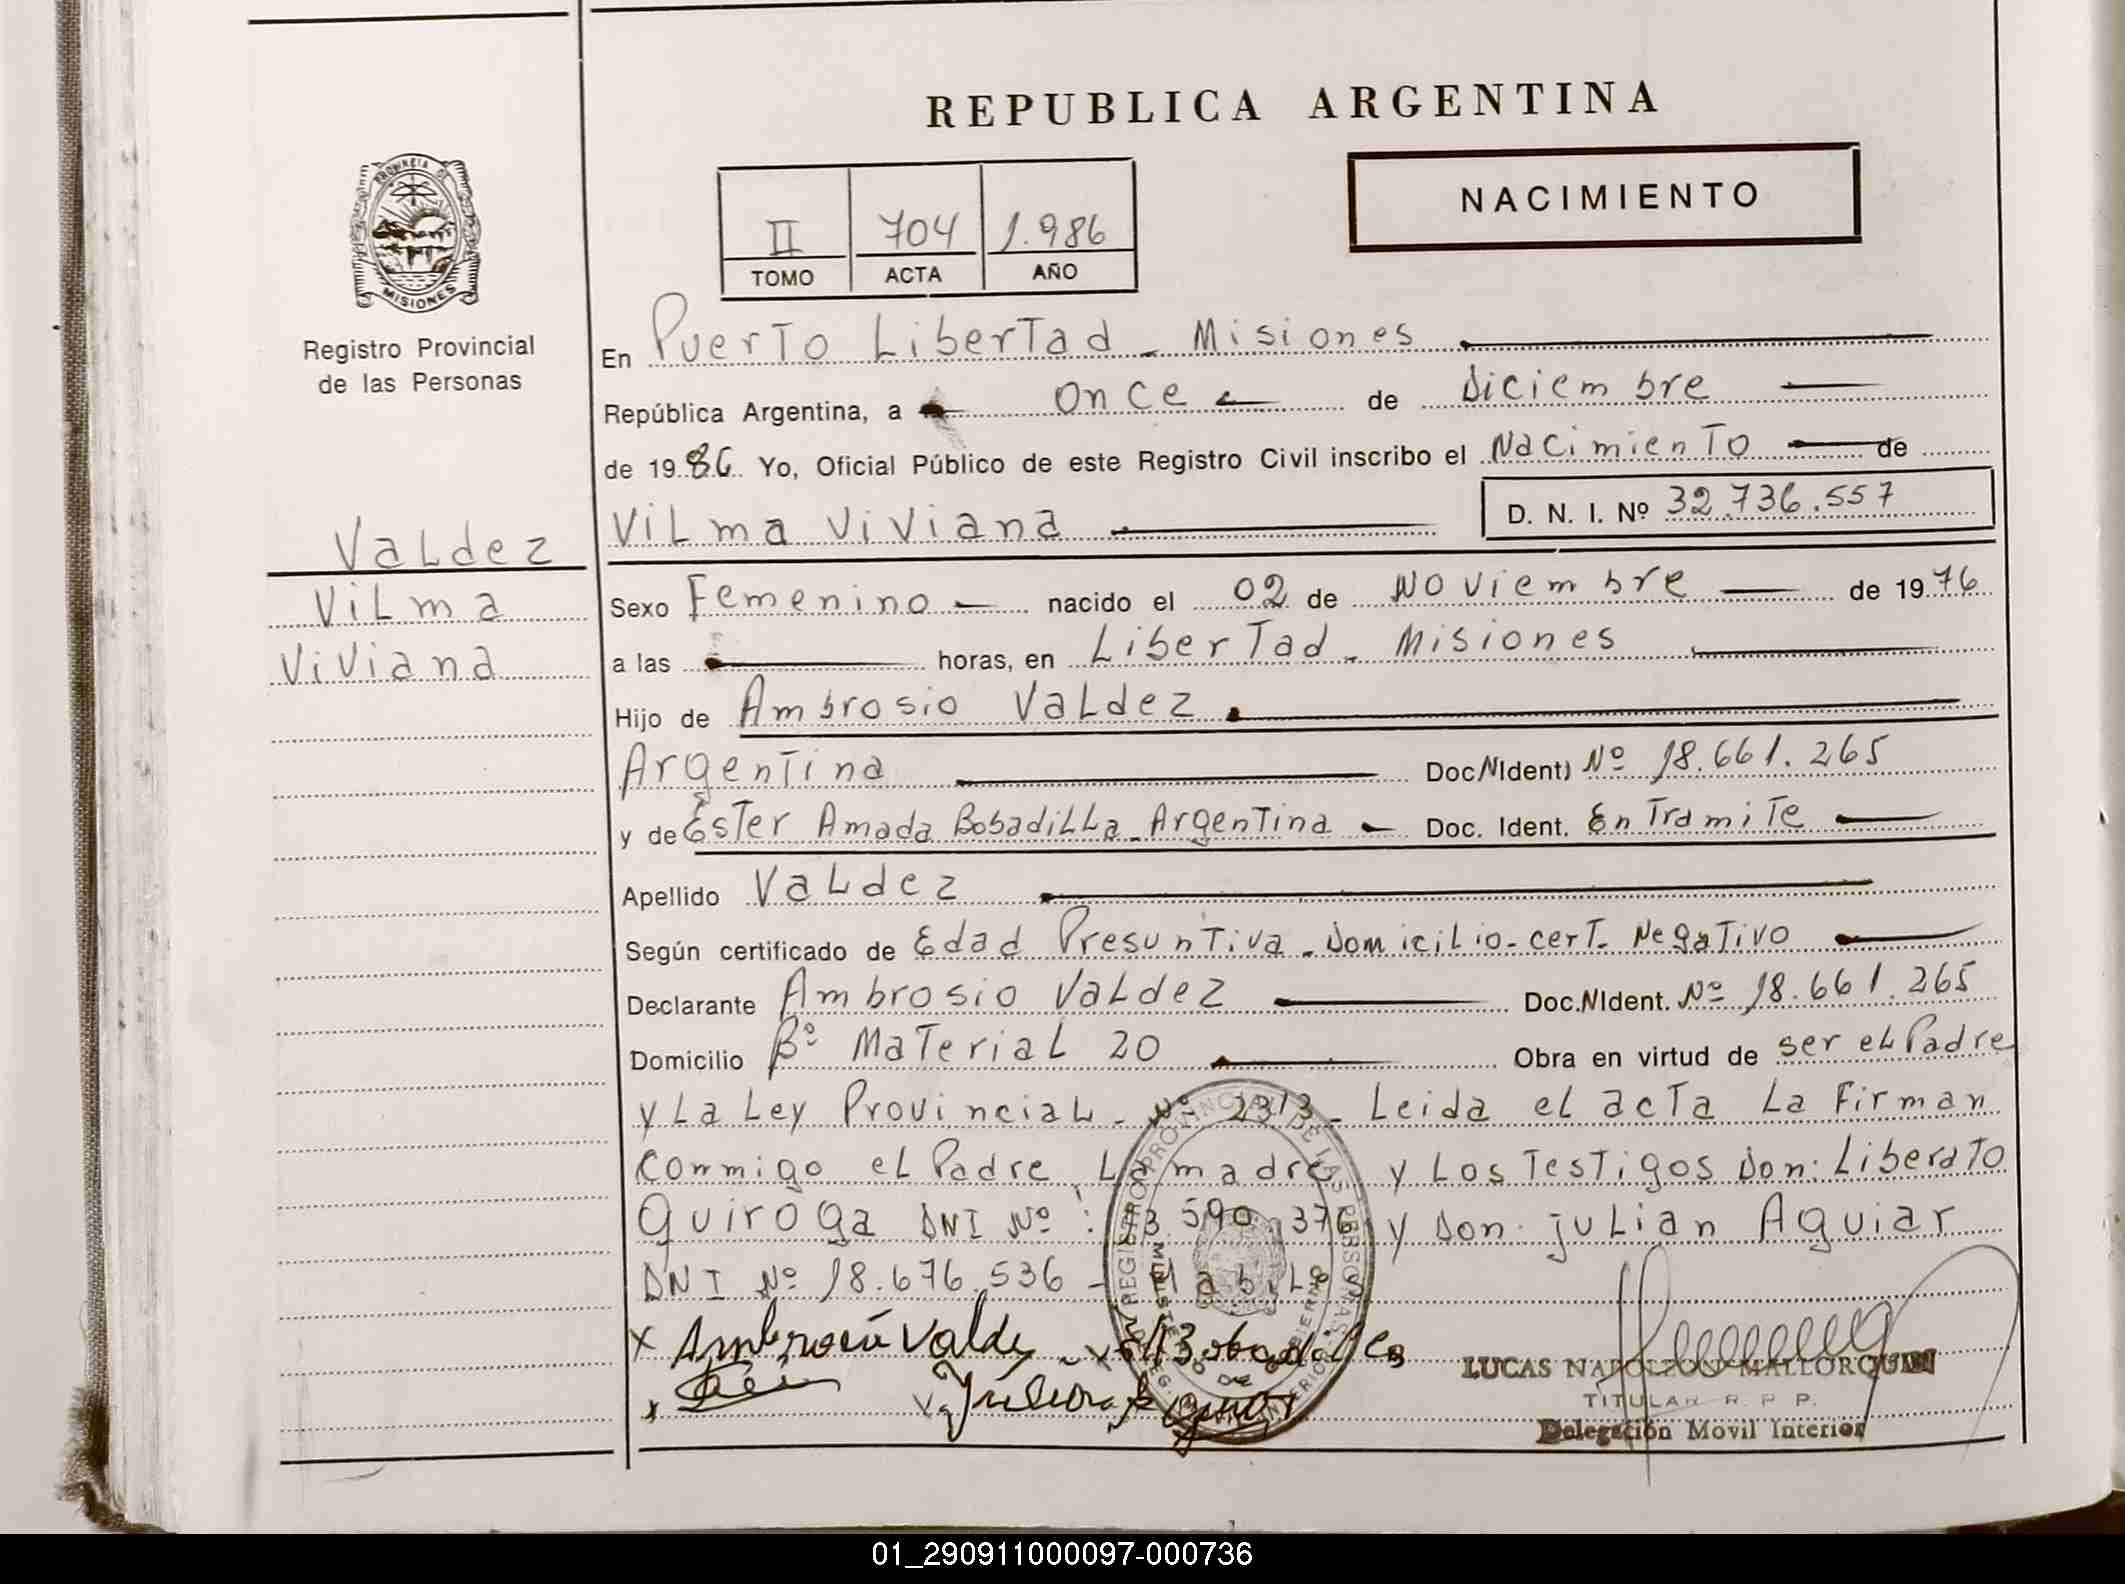 REPUBLICA ARGENTINA
NACIMIENTO
II 704 1.986
TOMO ACTA AÑO
PROVINCIA DE
MISIONES
Registro Provincial
de las Personas
Valdez
Vilma
Viviana
En Puerto Libertad - Misiones
República Argentina, a once de Diciembre
de 1986 Yo, Oficial Público de este Registro Civil inscribo el Nacimiento de
Vilma Viviana D. N. I. Nº 32.736.557
Sexo Femenino nacido el 02 de Noviembre de 1976
a las horas, en Libertad - Misiones
Hijo de Ambrosio Valdez
Argentina Doc.N.Ident. Nº 18.661.265
y de Ester Amada Bobadilla - Argentina Doc. Ident. En Tramite
Apellido Valdez
Según certificado de Edad Presuntiva - Domicilio - cert. Negativo
Declarante Ambrosio Valdez Doc.N.Ident. Nº 18.661.265
Domicilio Bº Material 20 Obra en virtud de ser el Padre
y La Ley Provincial - Nº 2313 - Leida el acta La Firman
conmigo el Padre, La madre y Los Testigos Don: Liberato
Quiroga DNI Nº: 13.590.376 y Don Julian Aguiar
DNI Nº 18.676.536 - Habiles
x Ambrosio Valde x E A Bobadilla
x Julian Aguiar
LUCAS NAPOLEON MALLORQUIN
TITULAR R. P. P.
Delegación Movil Interior
01_290911000097-000736